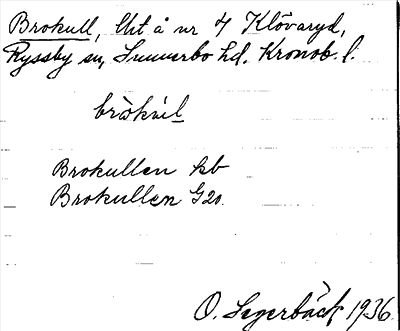 Brokull, lht å nr 7 Klövaryd,
Ryssby sn, Sunnerbo hd. Kronob. l.
Brokullen kb
Brokullen G20.
O. Segerbäck 1936.